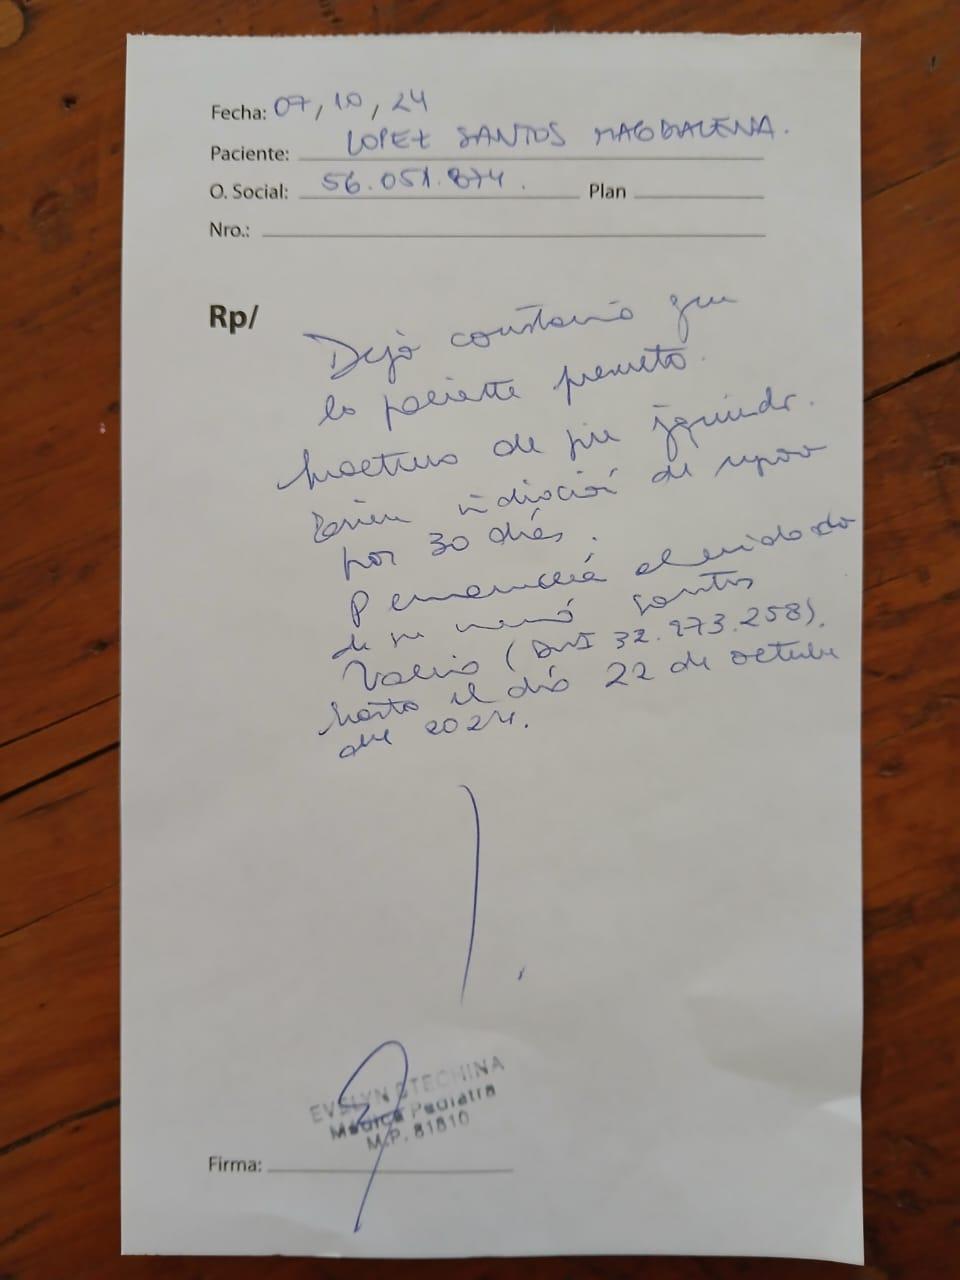 Fecha: 07, 10, 24
Paciente: LOPEZ SANTOS MAGDALENA.
O. Social: 56.051.874. Plan
Nro.:
Rp/
Dejo constancia que
la paciente presenta
fractura de pie izquierdo.
Tiene indicación de reposo
por 30 días.
Permanecerá al cuidado
de su mamá Santos
Valeria (DNI 32.973.258).
hasta el día 22 de octubre
del 2024.
EVELYN STECHINA
Médica Pediatra
M.P. 81810
Firma: